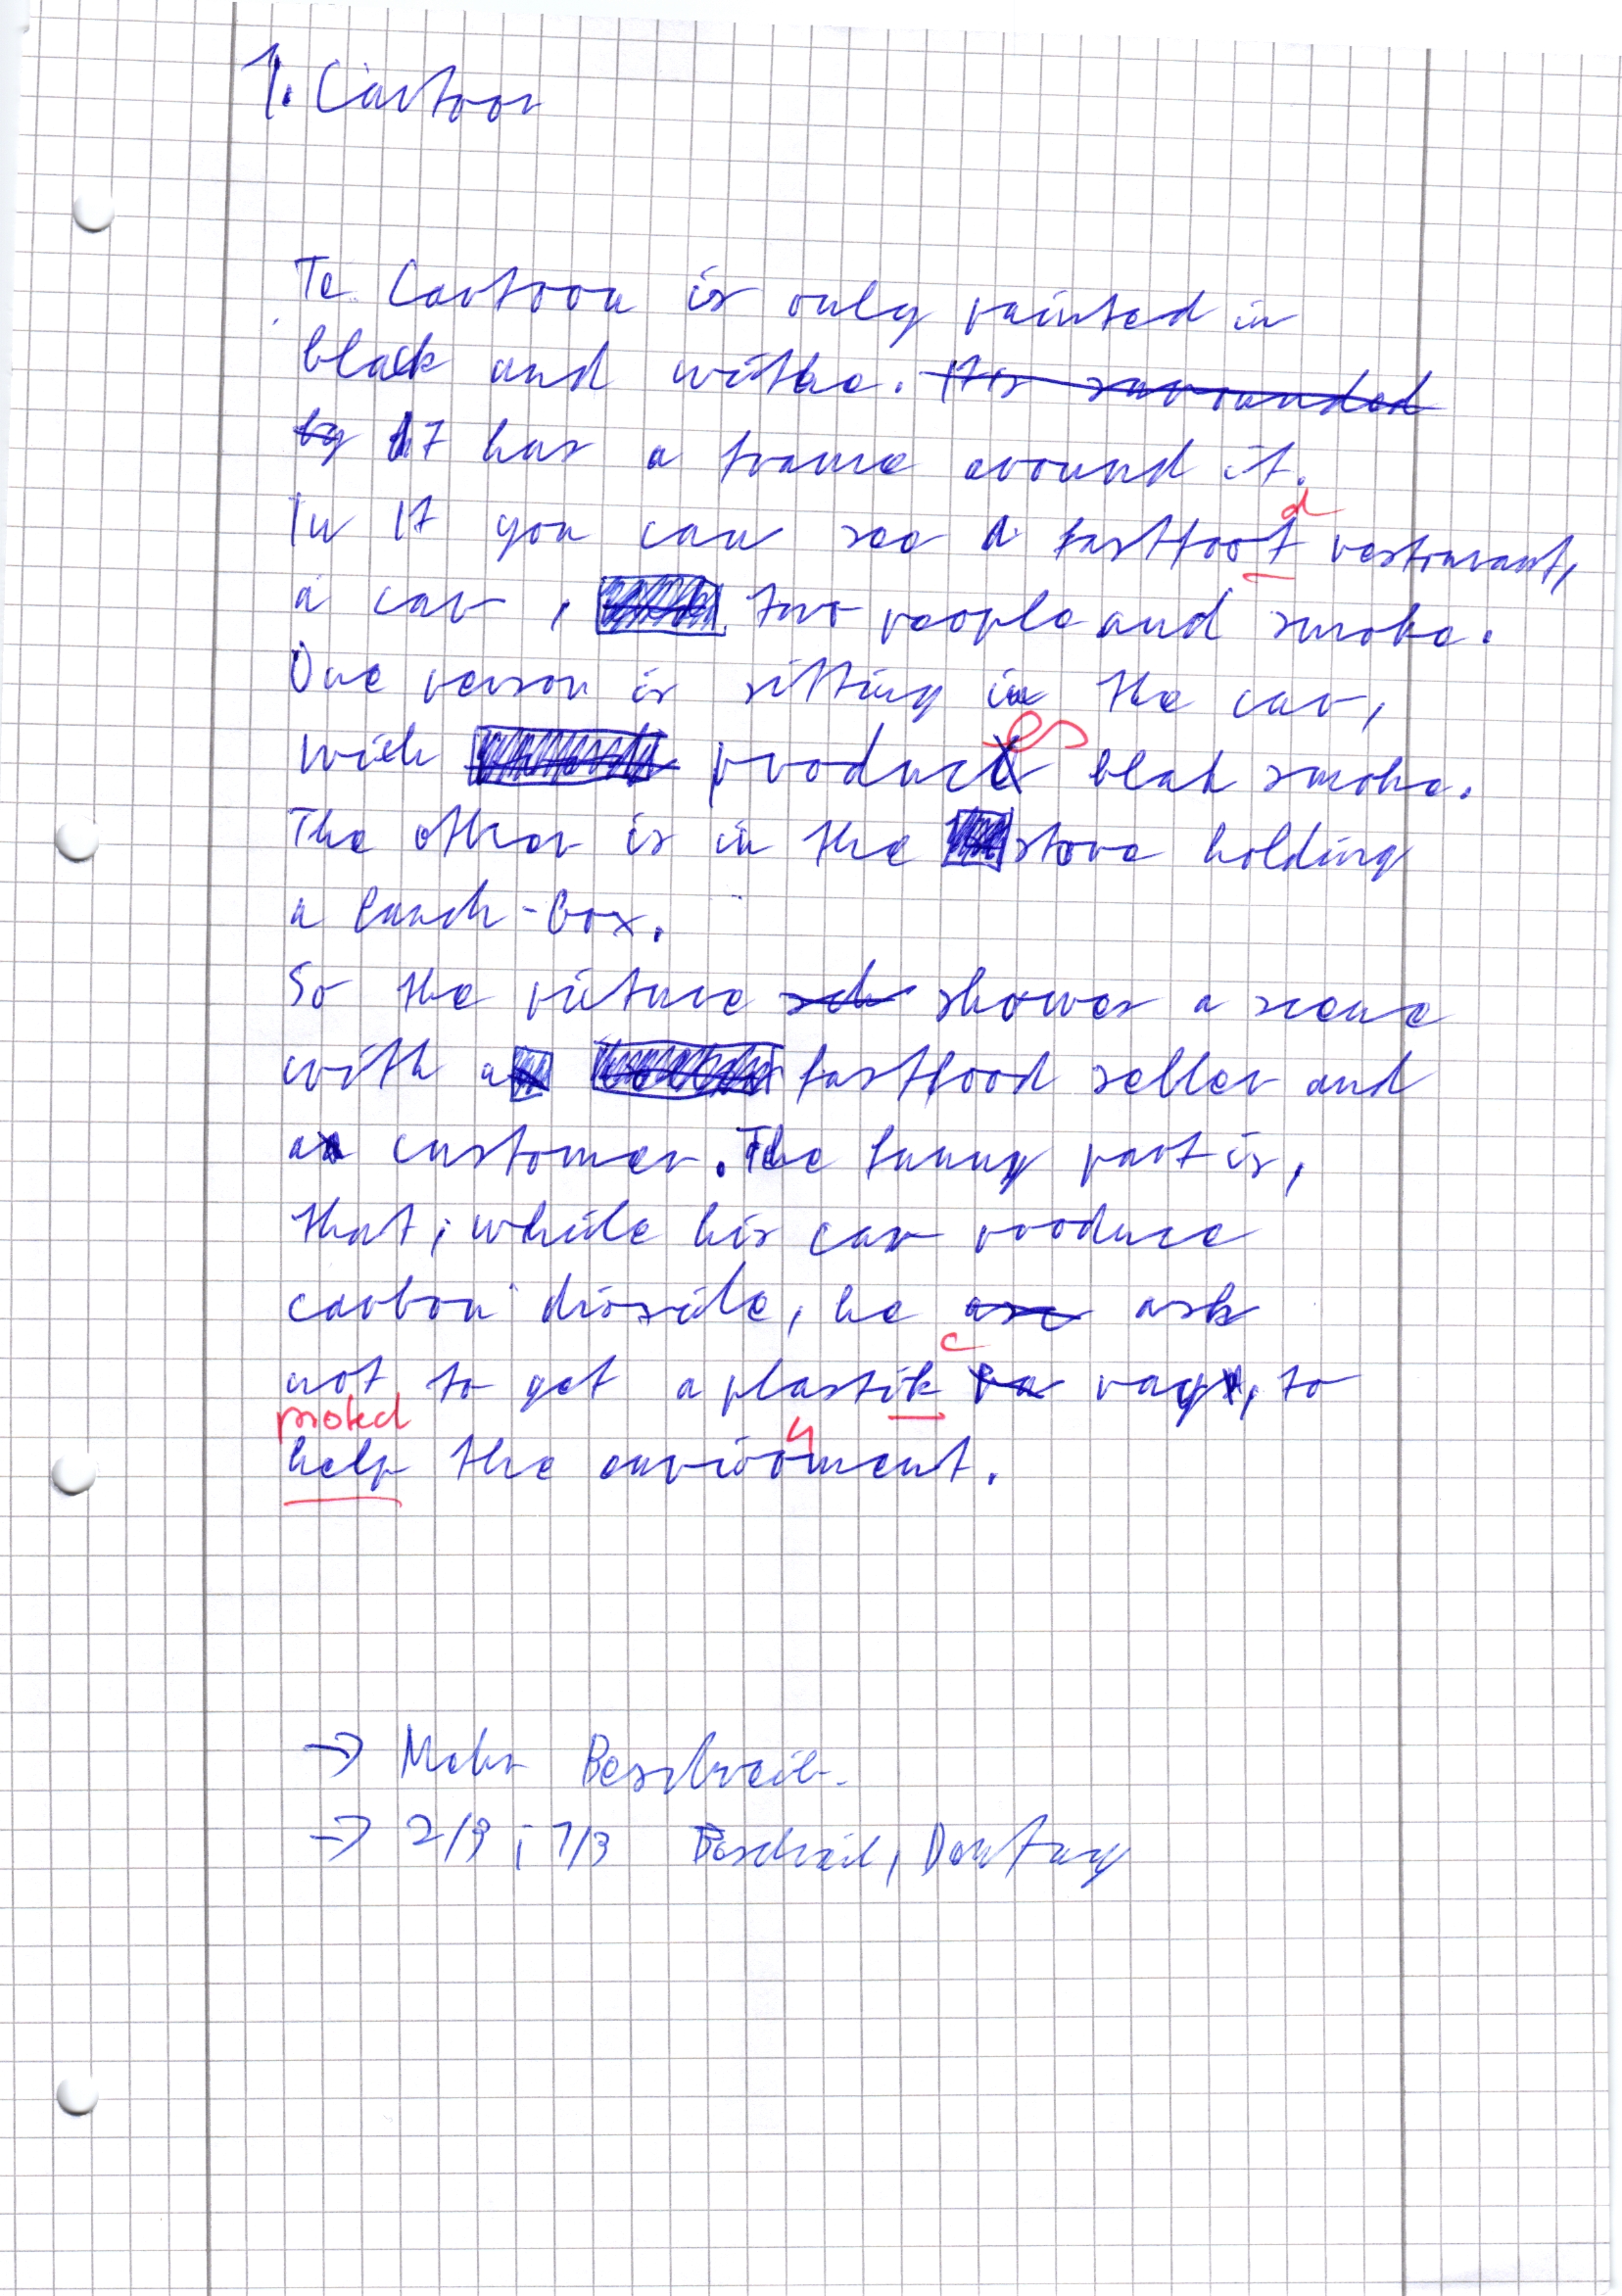 1. Cartoon
Te Cartoon is only painted in
black and withe. It is surrounded
by It has a frame around it.
d
In It you can see a fastfoot restaurant,
a car, two people and smoke.
One person is sitting in the car,
wich product es blak smoke.
The other is in the store holding
a lunch-box.
So the picture sch shower a scene
with a fastfood seller and
a customer. The funny part is,
that, while his car produce
carbon dioxide, he ask
c
not to get a plastik bag, to
protect
n
help the enviroment.
→ Mehr Beschreib.
→ 2/3 ; 1/3 Beschreib, Deutung